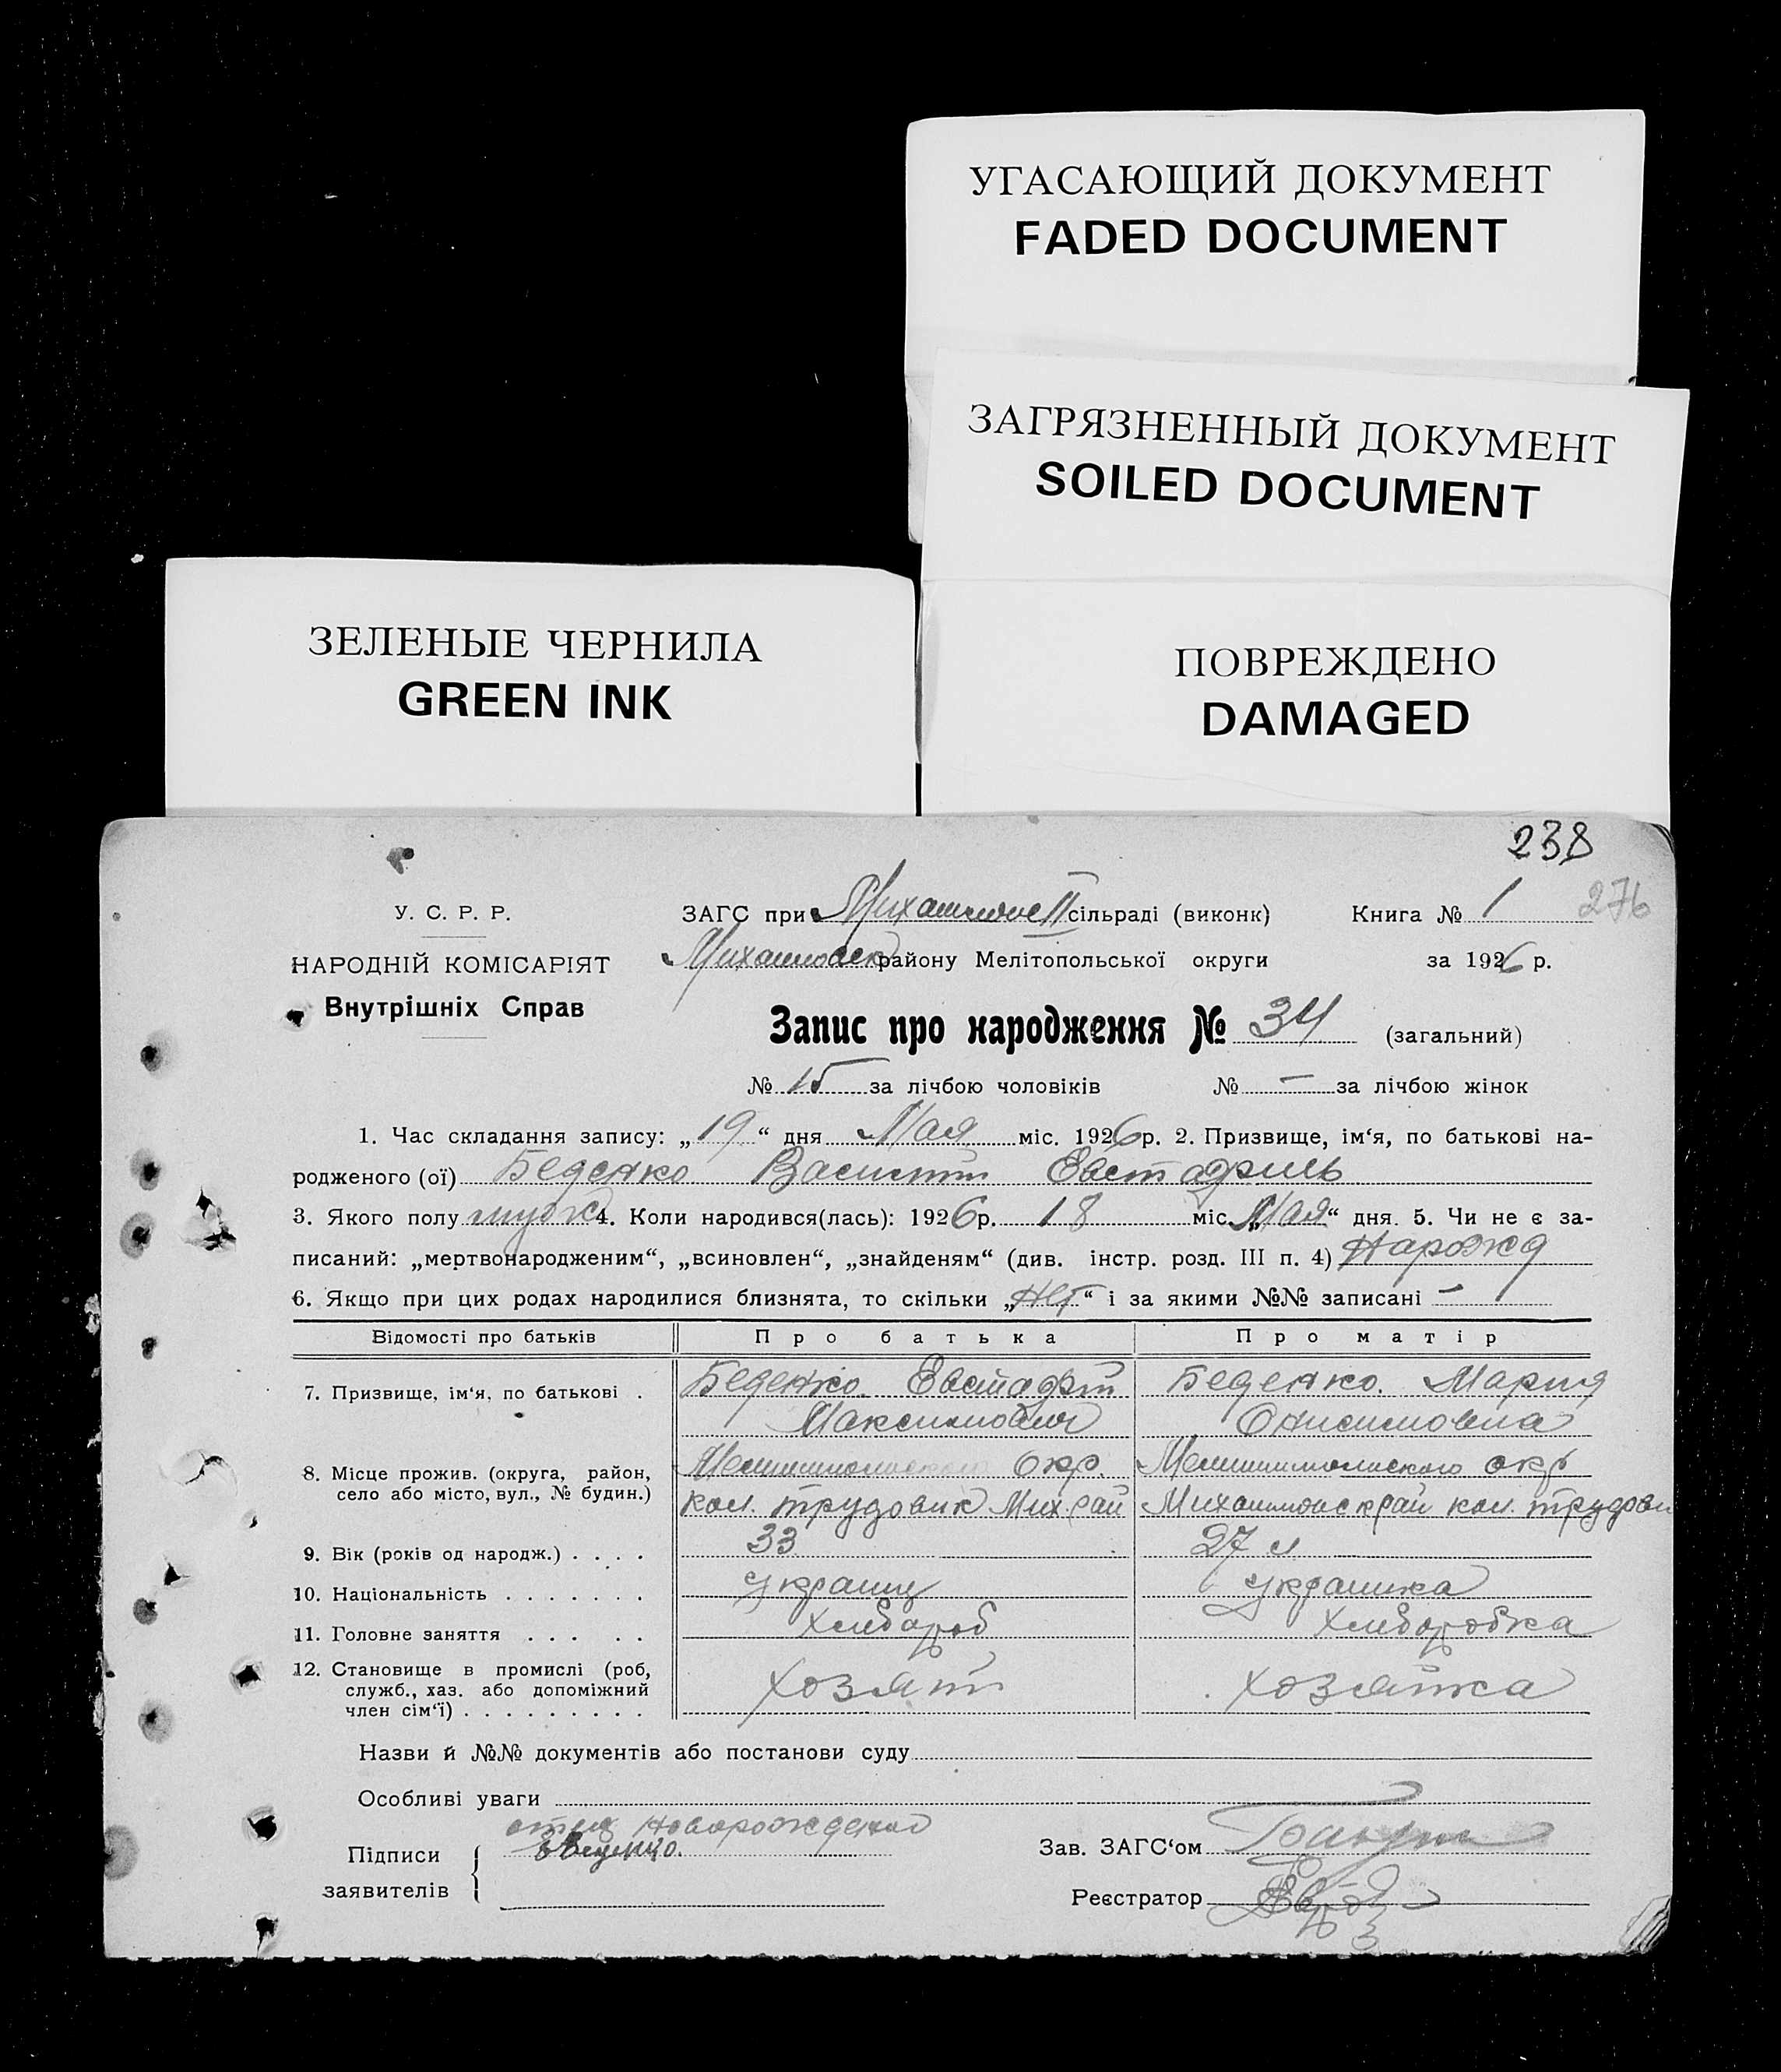 УГАСАЮЩИЙ ДОКУМЕНТ
FADED DOCUMENT
ЗАГРЯЗНЕННЫЙ ДОКУМЕНТ
SOILED DOCUMENT
ЗЕЛЕНЫЕ ЧЕРНИЛА
GREEN INK
ПОВРЕЖДЕНО
DAMAGED
238
У. С. Р. Р.
НАРОДНІЙ КОМІСАРІЯТ
Внутрішніх Справ
ЗАГС при II сільраді (виконк) Книга № 1 276
району Мелітопольської округи за 1926 р.
Запис про народження № 34 (загальний)
№ 15 за лічбою чоловіків № — за лічбою жінок
1. Час складання запису: „19“ дня Мая міс. 1926 р. 2. Призвище, ім‘я, по батькові на-
родженого (ої) Беденко Василий
3. Якого полу муж 4. Коли народився(лась): 1926 р. 18 міс. „Мая“ дня. 5. Чи не є за-
писаний: „мертвонародженим“, „всиновлен“, „знайденям“ (див. інстр. розд. III п. 4) Нарожд
6. Якщо при цих родах народилися близнята, то скільки „Нет“ і за якими №№ записані —
Відомості про батьків Про батька Про матір
7. Призвище, ім‘я, по батькові . Беденко Евстафий Беденко Мария
Максимович Онисимовна
8. Місце прожив. (округа, район, Окр. Мелитопольского окр
село або місто, вул., № будин.) кол. трудовик Мих. рай кол.
9. Вік (років од народж.) . . . . 33 27 л
10. Національність . . . . . . . украинц украинка
11. Головне заняття . . . . . Хлебороб Хлеборобка
12. Становище в промислі (роб, служб., хаз. або допоміжний член сім‘ї) . . . . . . . . . хозяин хозяйка
Назви й №№ документів або постанови суду
Особливі уваги
Підписи заявителів отец
Зав. ЗАГС‘ом
Реєстратор